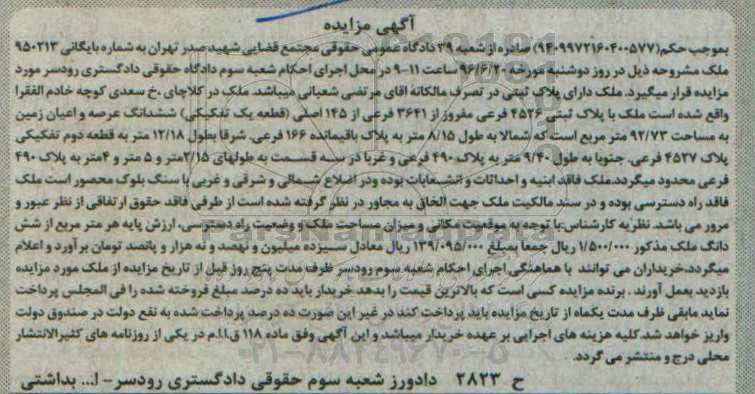 آگهی مزایده
بموجب حکم(۹۴۰۹۹۷۲۱۶۰۴۰۰۵۷۷) صادره از شعبه ۳۹ دادگاه عمومی حقوقی مجتمع قضایی شهید صدر تهران به شماره بایگانی ۹۵۰۲۱۳
ملک مشروحه ذیل در روز دوشنبه مورخه ۹۶/۶/۲۰ ساعت ۱۱-۹ در محل اجرای احکام شعبه سوم دادگاه حقوقی دادگستری رودسر مورد
مزایده قرار میگیرد. ملک دارای پلاک ثبتی در تصرف مالکانه اقای مرتضی شعبانی میباشد. ملک در کلاچای ،خ سعدی کوچه خادم الفقرا
واقع شده است ملک با پلاک ثبتی ۴۵۲۶ فرعی مفروز از ۳۶۴۱ فرعی از ۱۴۵ اصلی (قطعه یک تفکیکی) ششدانگ عرصه و اعیان زمین
به مساحت ۹۲/۷۳ متر مربع است که شمالا به طول ۸/۱۵ متر به پلاک باقیمانده ۱۶۶ فرعی. شرقا بطول ۱۲/۱۸ متر به قطعه دوم تفکیکی
پلاک ۴۵۲۷ فرعی. جنوبا به طول ۹/۴۰ متر به پلاک ۴۹۰ فرعی و غربا در سه قسمت به طولهای ۲/۱۵متر و ۵ متر و ۴متر به پلاک ۴۹۰
فرعی محدود میگردد.ملک فاقد ابنیه و احداثات و انشعابات بوده ودر اضلاع شمالی و شرقی و غربی با سنگ بلوک محصور است ملک
فاقد راه دسترسی بوده و در سند مالکیت ملک جهت الحاق به مجاور در نظر گرفته شده است از طرفی فاقد حقوق ارتفاقی از نظر عبور و
مرور می باشد. نظریه کارشناس:با توجه به موقعیت مکانی ومیزان مساحت ملک و وضعیت راه دسترسی، ارزش پایه هر متر مربع از شش
دانگ ملک مذکور ۱/۵۰۰/۰۰۰ ریال جمعا بمبلغ ۱۳۹/۰۹۵/۰۰۰ ریال معادل سیزده میلیون و نهصد و نه هزار و پانصد تومان برآورد و اعلام
میگردد.خریداران می توانند با هماهنگی اجرای احکام شعبه سوم رودسر ظرف مدت پنج روز قبل از تاریخ مزایده از ملک مورد مزایده
بازدید بعمل آورند . برنده مزایده کسی است که بالاترین قیمت را بدهد خریدار باید ده درصد مبلغ فروخته شده را فی المجلس پرداخت
نماید مابقی ظرف مدت یکماه از تاریخ مزایده باید پرداخت کند در غیر این صورت ده درصد پرداخت شده به نفع دولت در صندوق دولت
واریز خواهد شد.کلیه هزینه های اجرایی بر عهده خریدار میباشد و این آگهی وفق ماده ۱۱۸ ق.ا.ا.م در یکی از روزنامه های کثیرالانتشار
محلی درج و منتشر می گردد.
ح ۲۸۲۳ دادورز شعبه سوم حقوقی دادگستری رودسر - ا... بداشتی